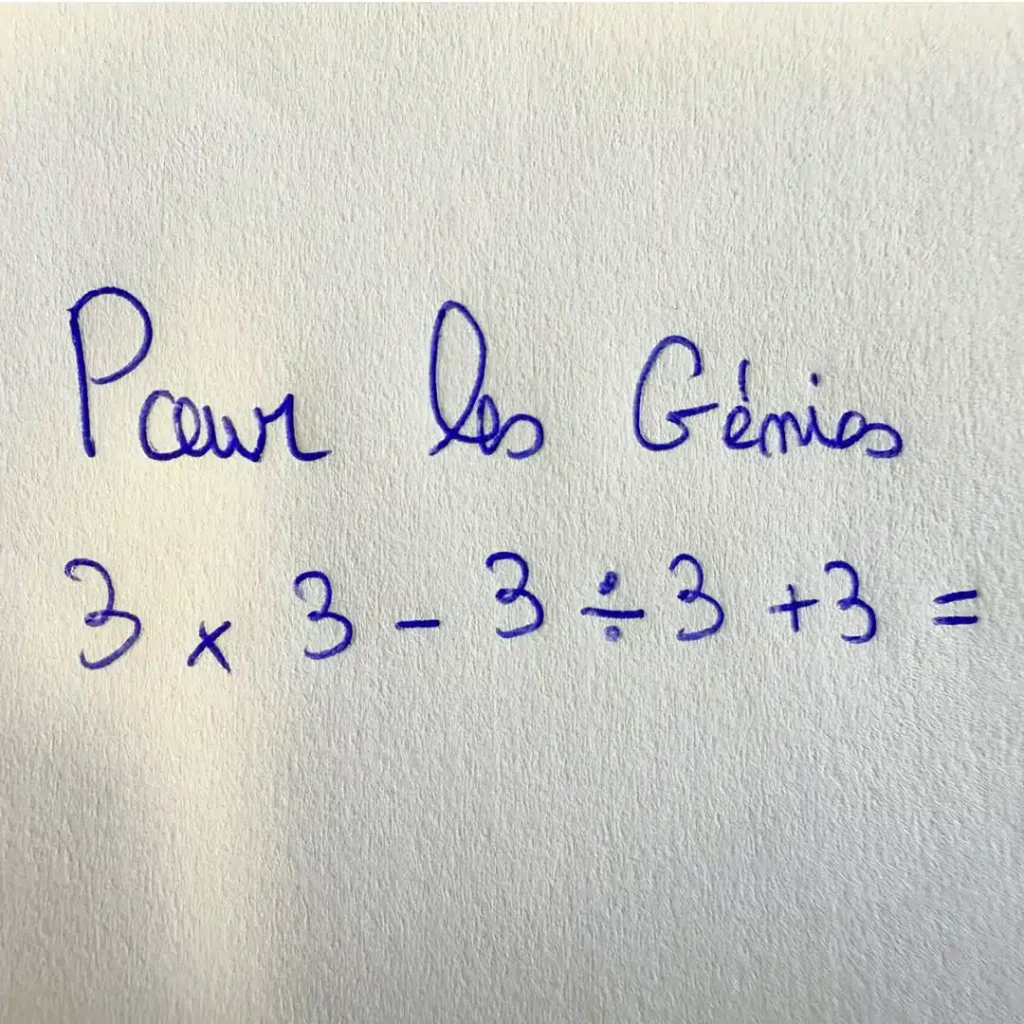 Pour les Génies
3 x 3 - 3 ÷ 3 + 3 =